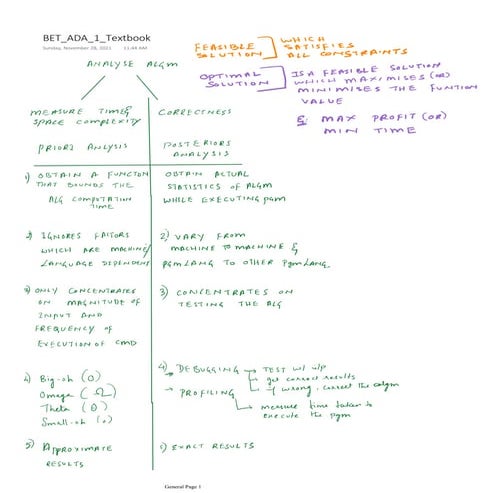 BET_ADA_1_Textbook
Sunday, November 28, 2021 11:44 AM
FEASIBLE SOLUTION
WHICH SATISFIES ALL CONSTRAINTS
OPTIMAL SOLUTION
IS A FEASIBLE SOLUTION
WHICH MAXIMISES (OR)
MINIMISES THE FUNTION
VALUE
Eg: MAX PROFIT (OR)
MIN TIME
ANALYSE ALGM
MEASURE TIME &
SPACE COMPLEXITY
CORRECTNESS
PRIORI ANALYSIS
POSTERIORS
ANALYSIS
1) OBTAIN A FUNCTION
THAT BOUNDS THE
ALG COMPUTATION
TIME
OBTAIN ACTUAL
STATISTICS OF ALGM
WHILE EXECUTING PGM
2) IGNORES FACTORS
WHICH ARE MACHINE/
LANGUAGE DEPENDENT
2) VARY FROM
MACHINE TO MACHINE &
PGM LANG TO OTHER PGM LANG.
3) ONLY CONCENTRATES
ON MAGNITUDE OF
INPUT AND
FREQUENCY OF
EXECUTION OF CMD
3) CONCENTRATES ON
TESTING THE ALG
4) Big-oh (O)
Omega (Ω)
Theta (θ)
Small-oh (o)
4) DEBUGGING → TEST W/ i/p
→ get correct results
→ if wrong, correct the algm
→ PROFILING
→ measure time taken to
execute the pgm
5) APPROXIMATE
RESULTS
5) EXACT RESULTS
General Page 1